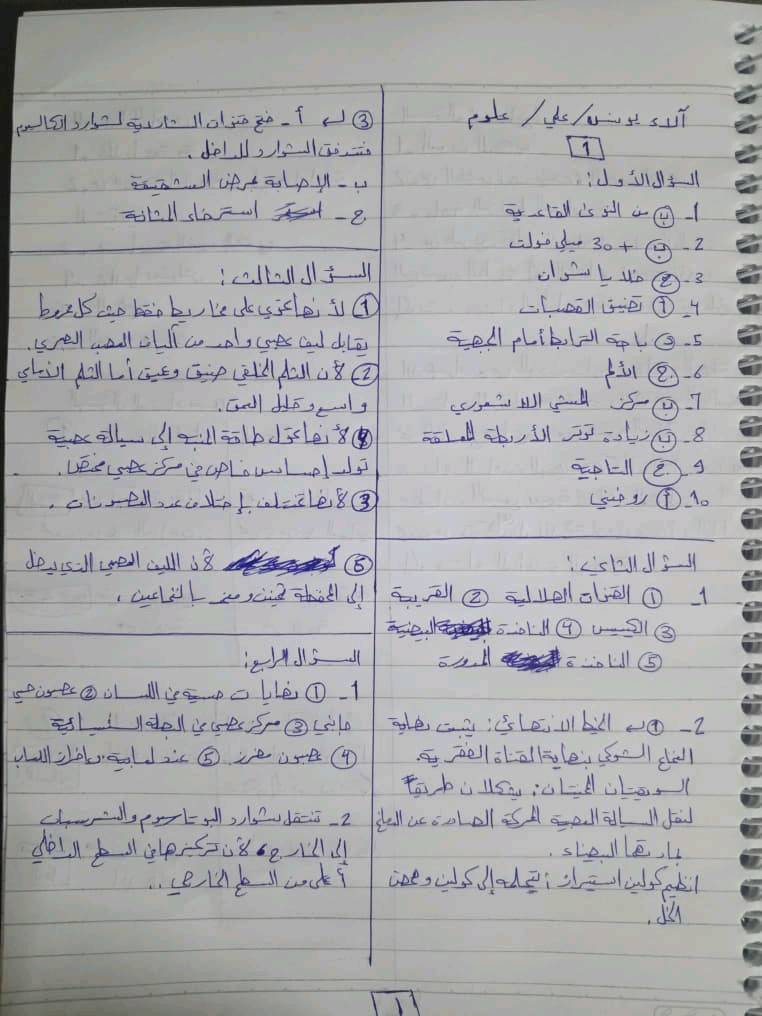 آلاء يونس / علي / علوم
1
السؤال الأول:
1- ب من النوى القاعدية
2- ب +30 ميلي فولت
3- ج خلايا شوان
4- أ تضيق القصبات
5- د باحة الترابط أمام الجبهية
6- ج الألم
7- ب مركز المشي اللاشعوري
8- ب زيادة توتر الأربطة المعلقة
9- ج التاجية
10- أ روضني
السؤال الثاني:
1- ① القنوات الهلالية ② القريبة
③ الكييس ④ النافذة البيضية
⑤ النافذة المدورة
2- ① الخيط الانتهائي: يثبت نهاية
النخاع الشوكي بنهاية القناة الفقرية.
السويقتان المخيتان: يشكلان طريقاً
لنقل السيالة العصبية المحركة الصادرة عن الدماغ
بمادتها البيضاء.
انظيم كولين استيراز: لتحلمه إلى كولين وحمض
الخل.
③ أ- فتح قنوات التبويب الفولطية لشوارد الكالسيوم
فتتدفق الشوارد للداخل.
ب- الإصابة بمرض الشقيقة
ج- استرخاء المثانة
السؤال الثالث:
① لأنها تحتوي على مخاريط فقط حيث كل مخروط
يقابل ليف عصبي واحد من ألياف العصب البصري.
② لأن الثلم الخلفي ضيق وعميق أما الثلم الأمامي
واسع وقليل العمق.
④ لأنها تحول طاقة المنبه إلى سيالة عصبية
تولد إحساس خاص في مركز عصبي مختص.
③ لأنها تختلف بإختلاف عدد العصبونات.
⑤ لأن الليف العصبي الذي يدخل
إلى المحفظة مجرد من غمد بالنخاعين.
السؤال الرابع:
1- ① نهايات حسية في اللسان ② عصبون حسي
جانبي ③ مركز عصبي في البصلة السيسائية
④ عصبون مفرز ⑤ غدد لعابية وإفراز اللعاب
2- تنتقل شوارد البوتاسيوم والشرسبات
إلى الخارج، لأن تركيزها في السطح الداخلي
أعلى من السطح الخارجي..
1